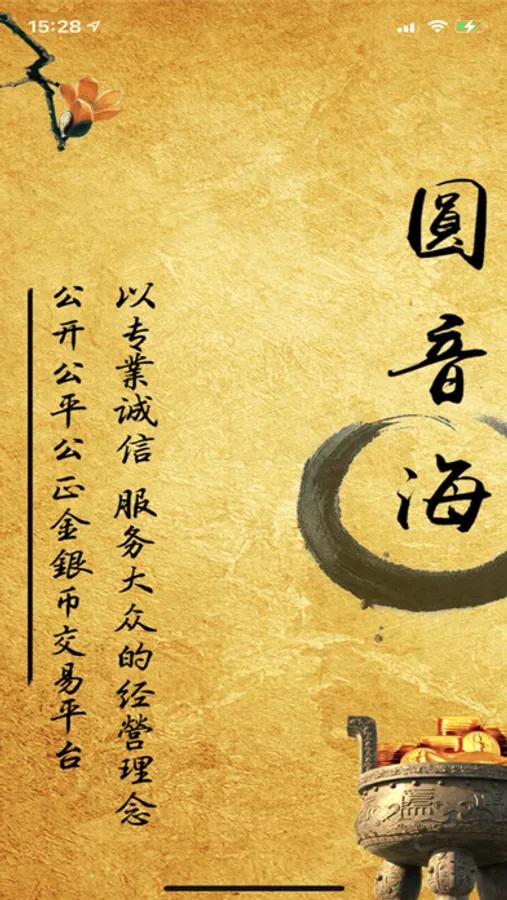 15:28
圓音海
以专業诚信 服务大众的经營理念
公开公平公正金銀币交易平台